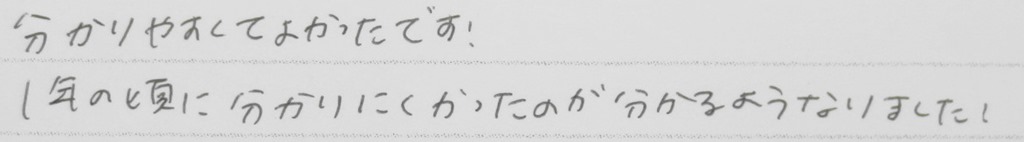 分かりやすくてよかったです!
1年の頃に分かりにくかったのが分かるようなりました!